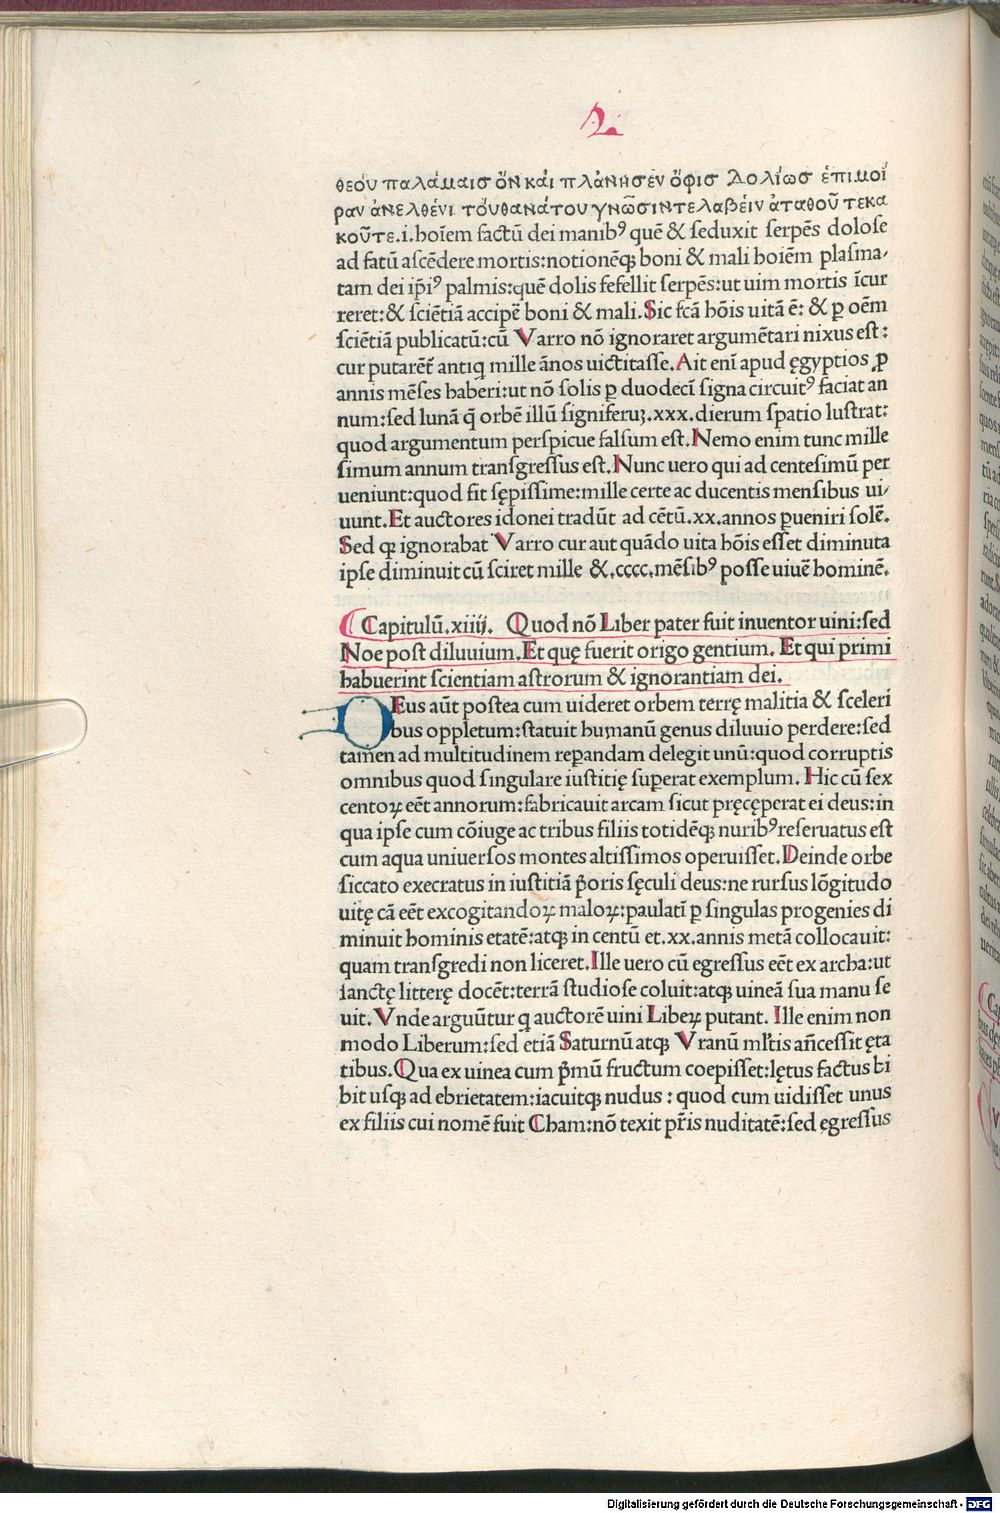 2.
θεόυ παλάμαισ ὅν κάι πλάνησεν ὄφισ Δολίωσ ἐπιμοί
ραν ἀνελθένι τόυθανάτου γνῶσιντελαβέιν ἀταθοῦ τεκα
κοῦτε.i.hoīem factū dei manibꝰ quē & ſeduxit ſerpēs doloſe
ad fatū aſcēdere mortis:notionēqꝫ boni & mali hoiēm plaſma⸗
tam dei ip̄iꝰ palmis:quē dolis fefellit ſerpēs:ut uim mortis īcur
reret:& ſciētiā accipe᷑ boni & mali.Sic fcā hōis uitā ē: & ꝑ oēm
ſciētiā publicatū:cū Varro nō ignoraret argumētari nixus eſt:
cur putarēt᷑ antiq mille ānos uictitaſſe.Ait enī apud ęgyptios ꝓ
annis mēſes haberi:ut nō ſolis ꝑ duodecī ſigna circuitꝰ faciat an
num:ſed lunā q̄ orbē illū ſigniferuꝫ.xxx.dierum ſpatio luſtrat:
quod argumentum perſpicue falſum eſt.Nemo enim tunc mille
ſimum annum tranſgreſſus eſt.Nunc uero qui ad centeſimū per
ueniunt:quod fit ſępiſſime:mille certe ac ducentis menſibus ui⸗
uunt.Et auctores idonei tradūt ad cētū.xx.annos ꝑueniri ſolē.
Sed qꝛ ignorabat Varro cur aut quādo uita hōis eſſet diminuta
ipſe diminuit cū ſciret mille &.cccc.mēſibꝰ poſſe uiuē hominē.
Capitulū.xiiij. Quod nō Liber pater fuit inuentor uini:ſed
Noe poſt diluuium.Et quę fuerit origo gentium. Et qui primi
habuerint ſcientiam aſtrorum & ignorantiam dei.
DEus aūt poſtea cum uideret orbem terrę malitia & ſceleri
bus oppletum:ſtatuit humanū genus diluuio perdere:ſed
tamen ad multitudinem reꝑandam delegit unū:quod corruptis
omnibus quod ſingulare iuſtitię ſuperat exemplum. Hic cū ſex
centoꝝ eēt annorum:fabricauit arcam ſicut pręcęperat ei deus:in
qua ipſe cum cōiuge ac tribus filiis totidēqꝫ nuribꝰ reſeruatus eſt
cum aqua uniuerſos montes altiſſimos operuiſſet.Deinde orbe
ſiccato execratus in iuſtitiā p̄oris ſęculi deus:ne rurſus lōgitudo
uitę cā eēt excogitandoꝝ maloꝝ:paulatī ꝑ ſingulas progenies di
minuit hominis etatē:atqꝫ in centū et.xx.annis metā collocauit:
quam tranſgredi non liceret.Ille uero cū egreſſus eēt ex archa:ut
ſanctę litterę docēt:terrā ſtudioſe coluit:atqꝫ uineā ſua manu ſe
uit. Vnde arguūtur q auctorē uini Libeꝝ putant. Ille enim non
modo Liberum:ſed etiā Saturnū atqꝫ Vranū ml̄tis an̄ceſſit ęta
tibus.Qua ex uinea cum p̄mū fructum coepiſſet:lętus factus bi
bit uſqꝫ ad ebrietatem:iacuitqꝫ nudus : quod cum uidiſſet unus
ex filiis cui nomē fuit Cham:nō texit pr̄is nuditatē:ſed ęgreſſus
Digitalisierung gefördert durch die Deutsche Forschungsgemeinschaft - DFG